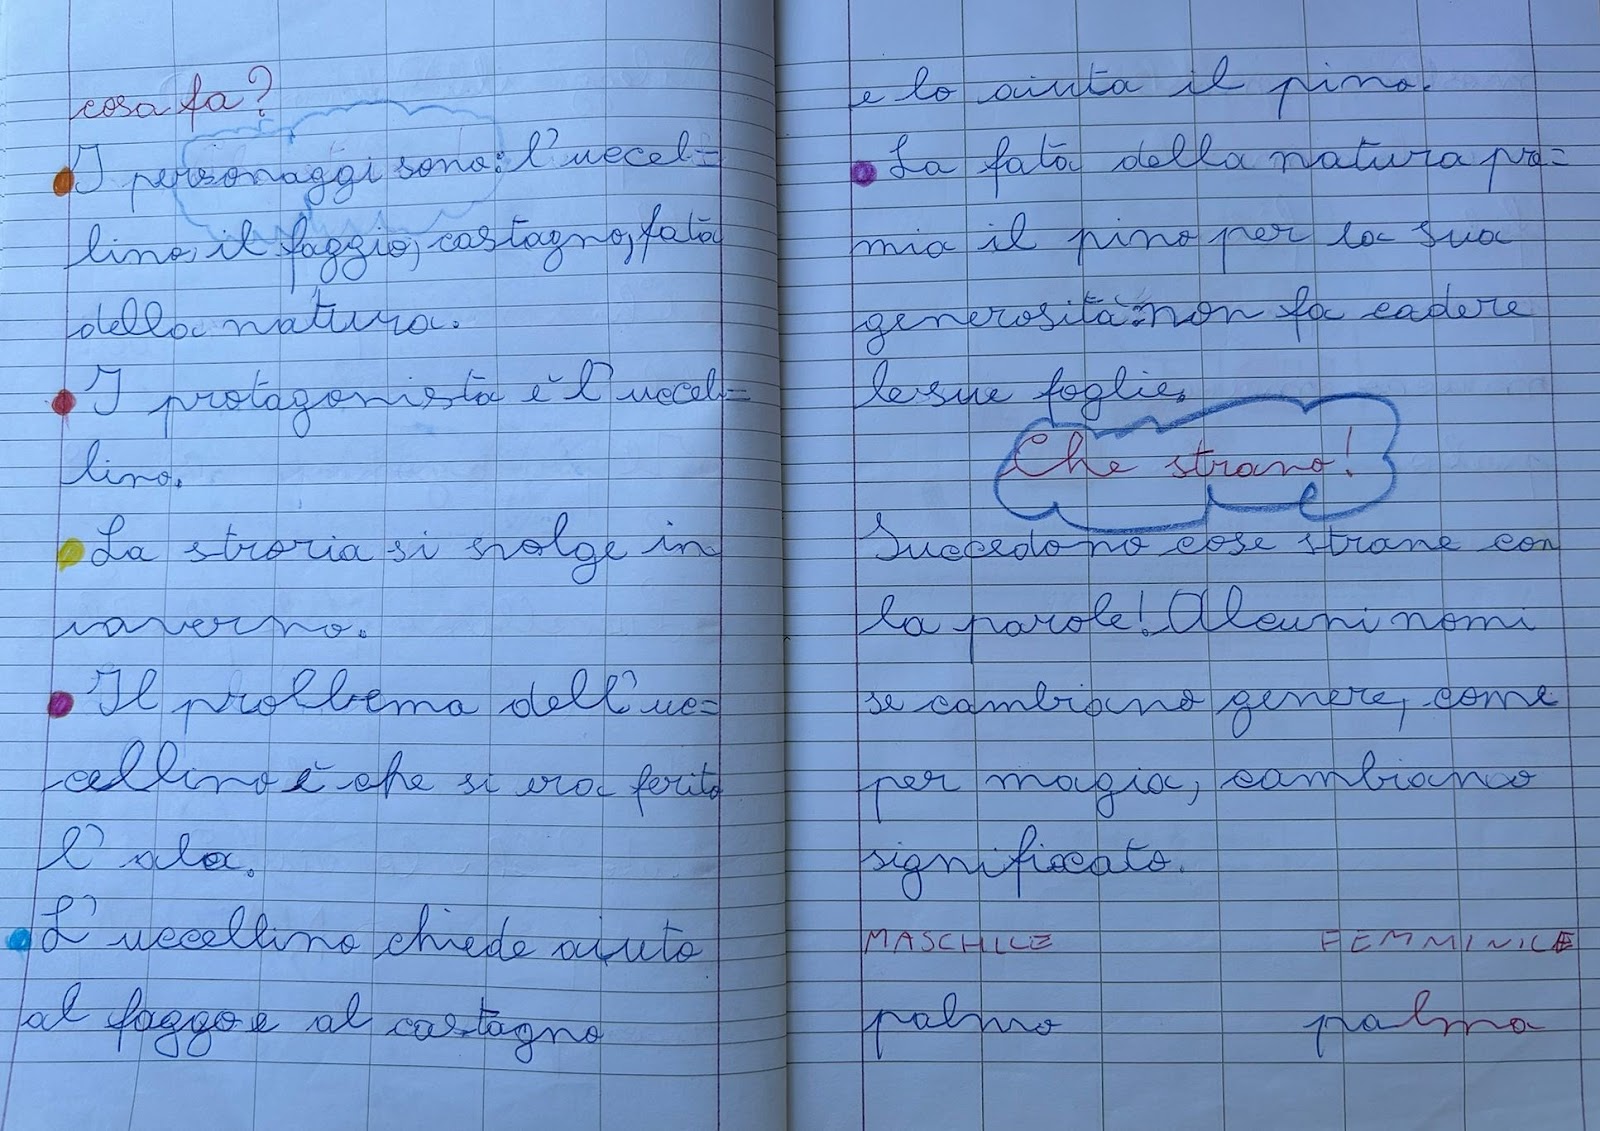 cosa fa?
I personaggi sono: l'uccel=
lino, il faggio, castagno, fata
della natura.
I protagonista è l'uccel=
lino.
La stroria si svolge in
inverno.
Il prolbema dell'uc=
cellino è che si era ferito
l'ala.
L'uccellino chiede aiuto
al faggo e al castagno
e lo aiuta il pino.
La fata della natura pre=
mia il pino per la sua
generosità: non fa cadere
le sue foglie.
Che strano!
Succedono cose strane con
la parole! Alcuni nomi
se cambiano genere, come
per magia, cambiano
significato.
MASCHILE FEMMINILE
palmo palma